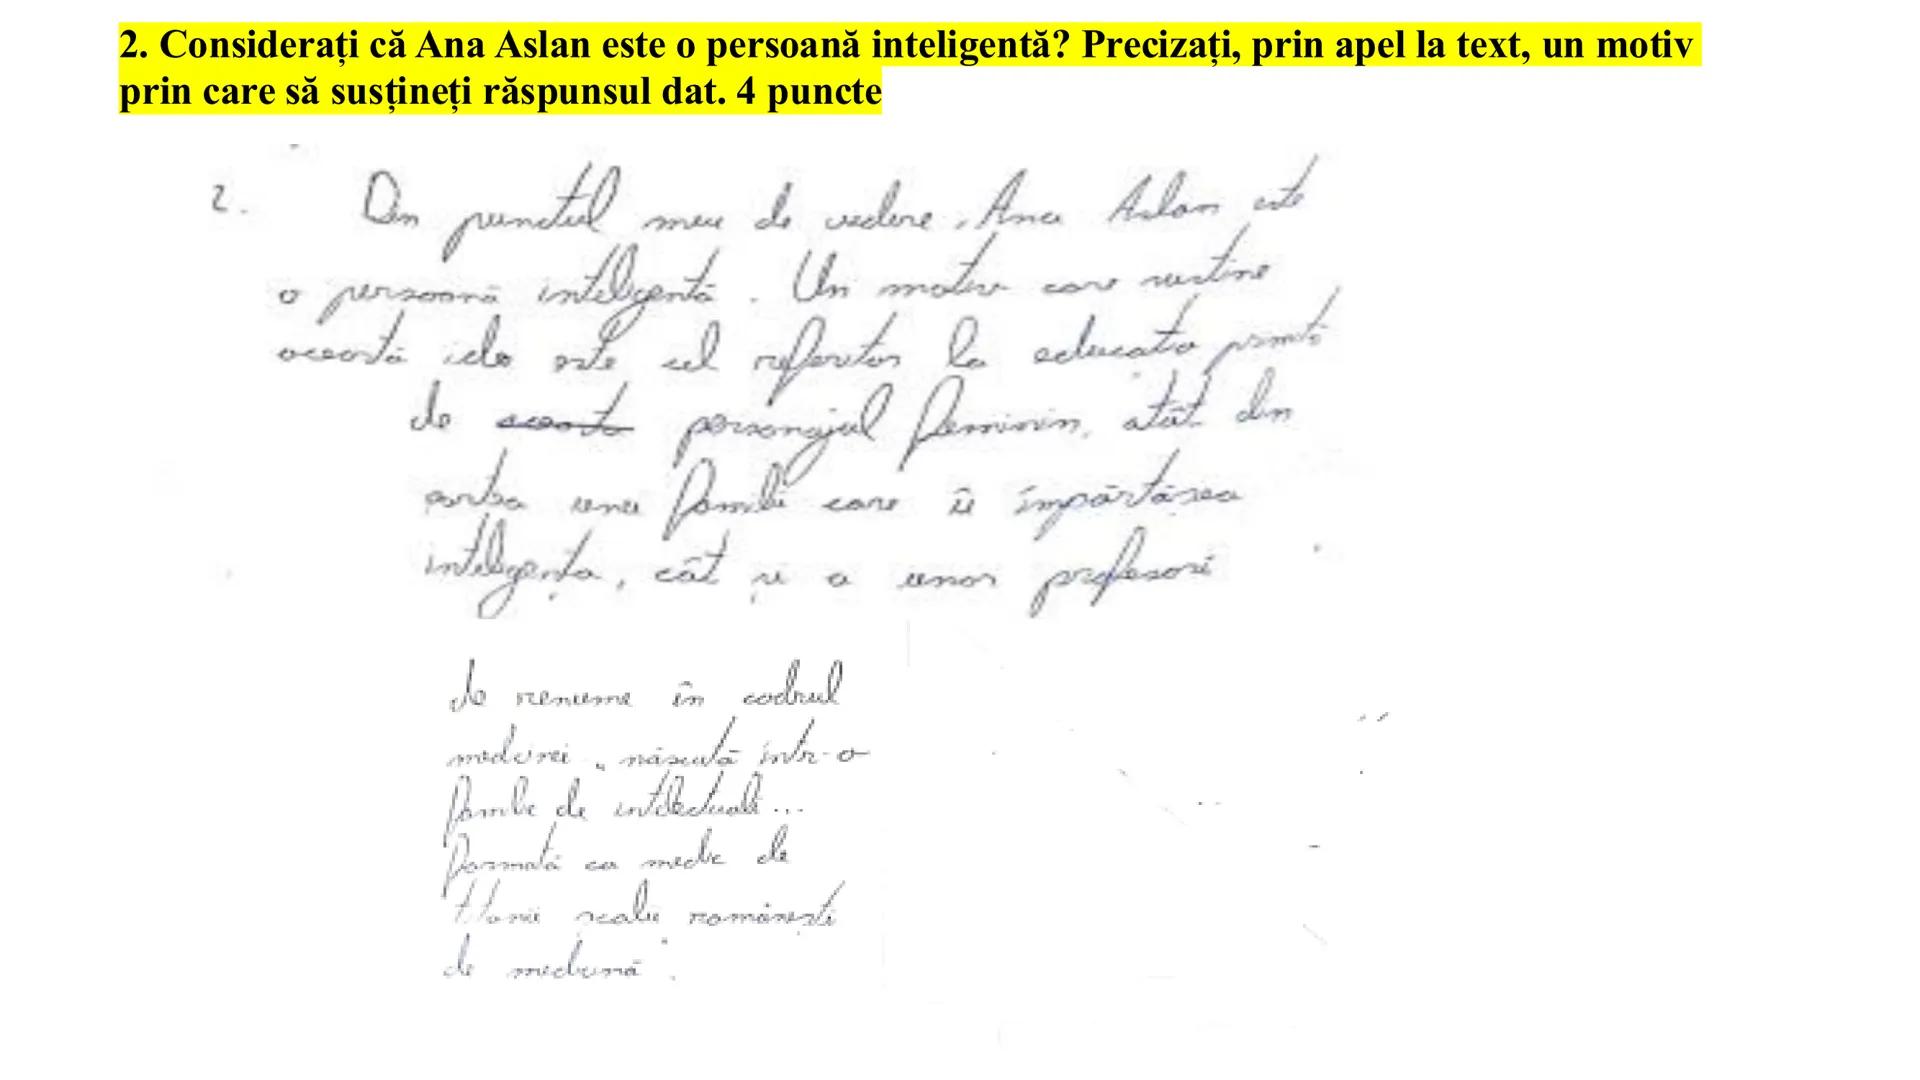 2. Considerați că Ana Aslan este o persoană inteligentă? Precizați, prin apel la text, un motiv
prin care să susțineți răspunsul dat. 4 puncte
2. Din punctul meu de vedere, Ana Aslan este
o persoană inteligentă. Un motiv care susține
această idee este cel referitor la educația primită
de personajul feminin, atât din
partea unei familii care îi împărtășea
inteligența, cât și a unor profesori
de renume în cadrul
medicinei „născută într-o
familie de intelectuali...
formată ca medic de
titanii școlii românești
de medicină”.